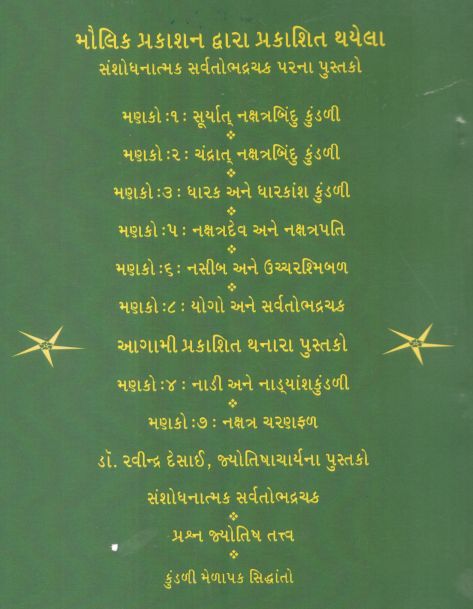 મૌલિક પ્રકાશન દ્વારા પ્રકાશિત થયેલા
સંશોધનાત્મક સર્વતોભદ્રચક્ર પરના પુસ્તકો
મણકો :૧ : સૂર્યાત્ નક્ષત્રબિંદુ કુંડળી
મણકો :૨ : ચંદ્રાત્ નક્ષત્રબિંદુ કુંડળી
મણકો :૩ : ધારક અને ધારકાંશ કુંડળી
મણકો :૫ : નક્ષત્રદેવ અને નક્ષત્રપતિ
મણકો :૬ : નસીબ અને ઉચ્ચરશ્મિબળ
મણકો :૮ : યોગો અને સર્વતોભદ્રચક્ર
આગામી પ્રકાશિત થનારા પુસ્તકો
મણકો :૪ : નાડી અને નાડ્યાંશકુંડળી
મણકો :૭ : નક્ષત્ર ચરણફળ
ડૉ. રવીન્દ્ર દેસાઈ, જ્યોતિષાચાર્યના પુસ્તકો
સંશોધનાત્મક સર્વતોભદ્રચક્ર
પ્રશ્ન જ્યોતિષ તત્ત્વ
કુંડળી મેળાપક સિદ્ધાંતો